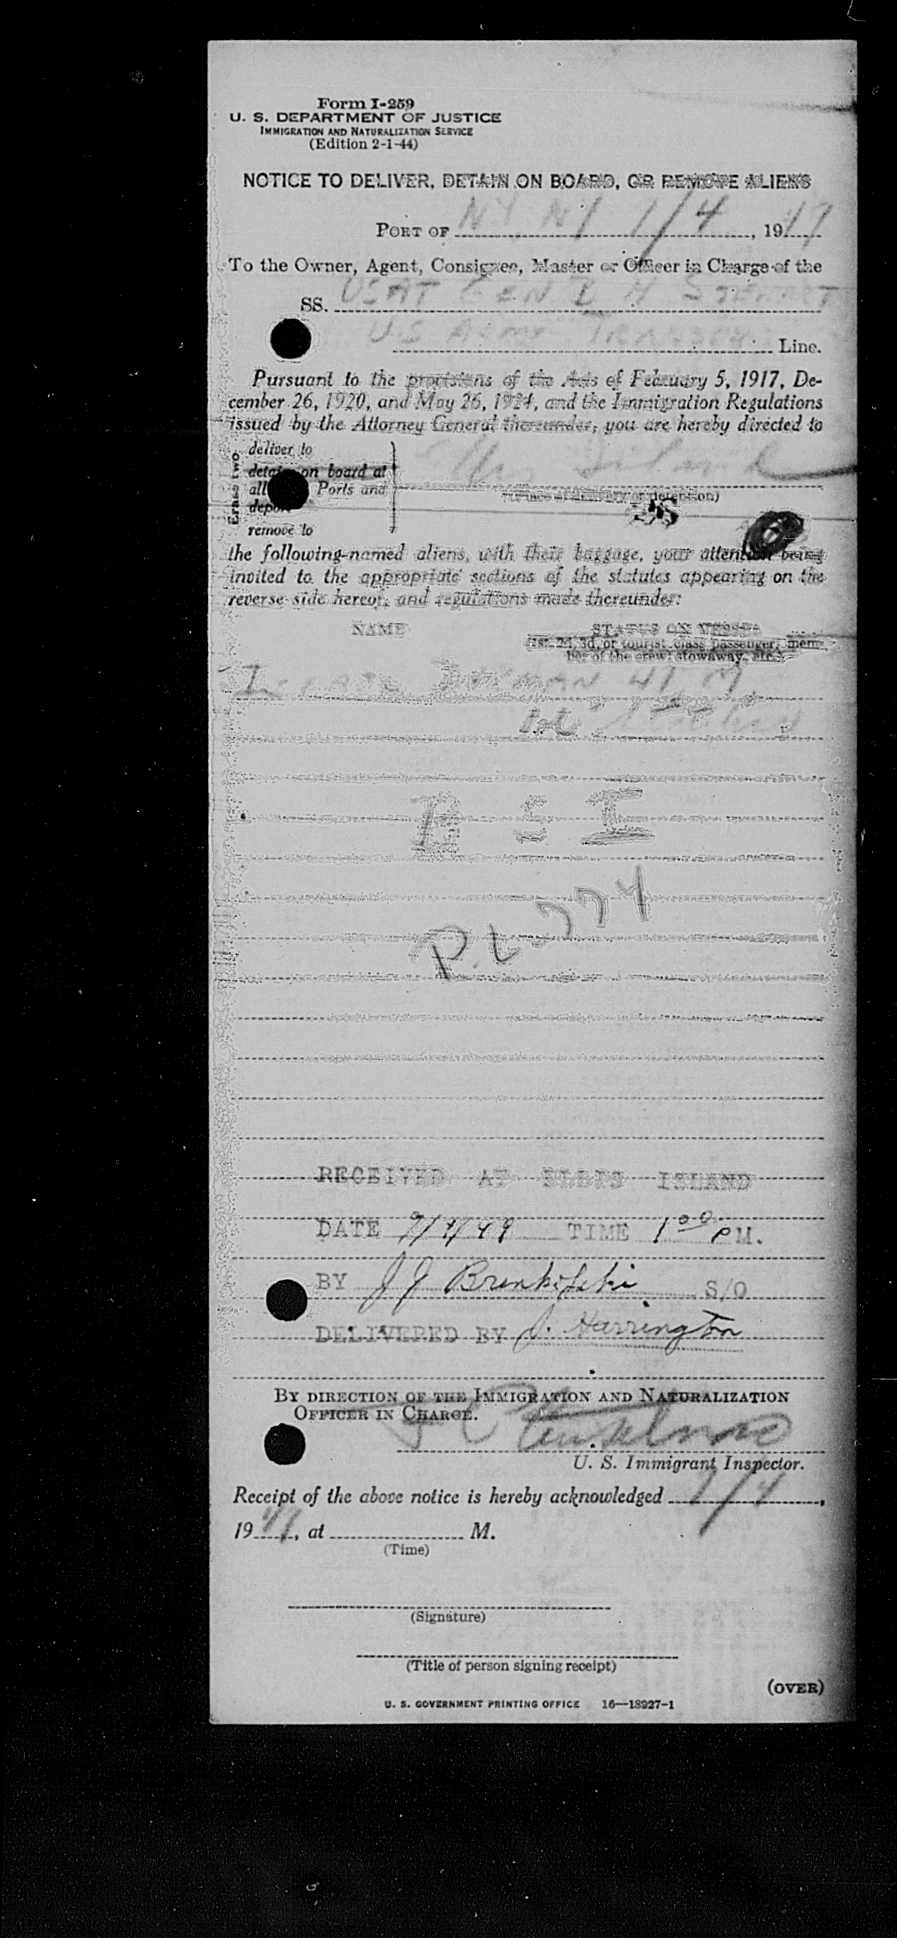 Form I-259
U. S. DEPARTMENT OF JUSTICE
IMMIGRATION AND NATURALIZATION SERVICE
(Edition 2-1-44)
NOTICE TO DELIVER, DETAIN ON BOARD, OR REMOVE ALIENS
PORT OF NY NY 1/4, 1949
To the Owner, Agent, Consignee, Master or Officer in Charge of the
SS. USAT GEN STEWART
US ARMY Line.
Pursuant to the provisions of the Acts of February 5, 1917, De-
cember 26, 1920, and May 26, 1924, and the Immigration Regulations
issued by the Attorney General thereunder, you are hereby directed to
Erase two
deliver to
detain on board at
all Ports and
deport
remove to
Ellis Island
(Place of delivery or detention)
the following-named aliens, with their baggage, your attention being
invited to the appropriate sections of the statutes appearing on the
reverse side hereof, and regulations made thereunder:
NAME
STATUS ON VESSEL
(1st, 2d, 3d, or tourist class passenger, mem-
ber of the crew, stowaway, etc.)
41 M
B S I
RECEIVED AT ELLIS ISLAND
DATE TIME 1 00 P M.
BY J J S/O
DELIVERED BY J. Harrington
BY DIRECTION OF THE IMMIGRATION AND NATURALIZATION
OFFICER IN CHARGE.
U. S. Immigrant Inspector.
Receipt of the above notice is hereby acknowledged 1/4,
1949, at M.
(Time)
(Signature)
(Title of person signing receipt)
(OVER)
U. S. GOVERNMENT PRINTING OFFICE 16—18927-1